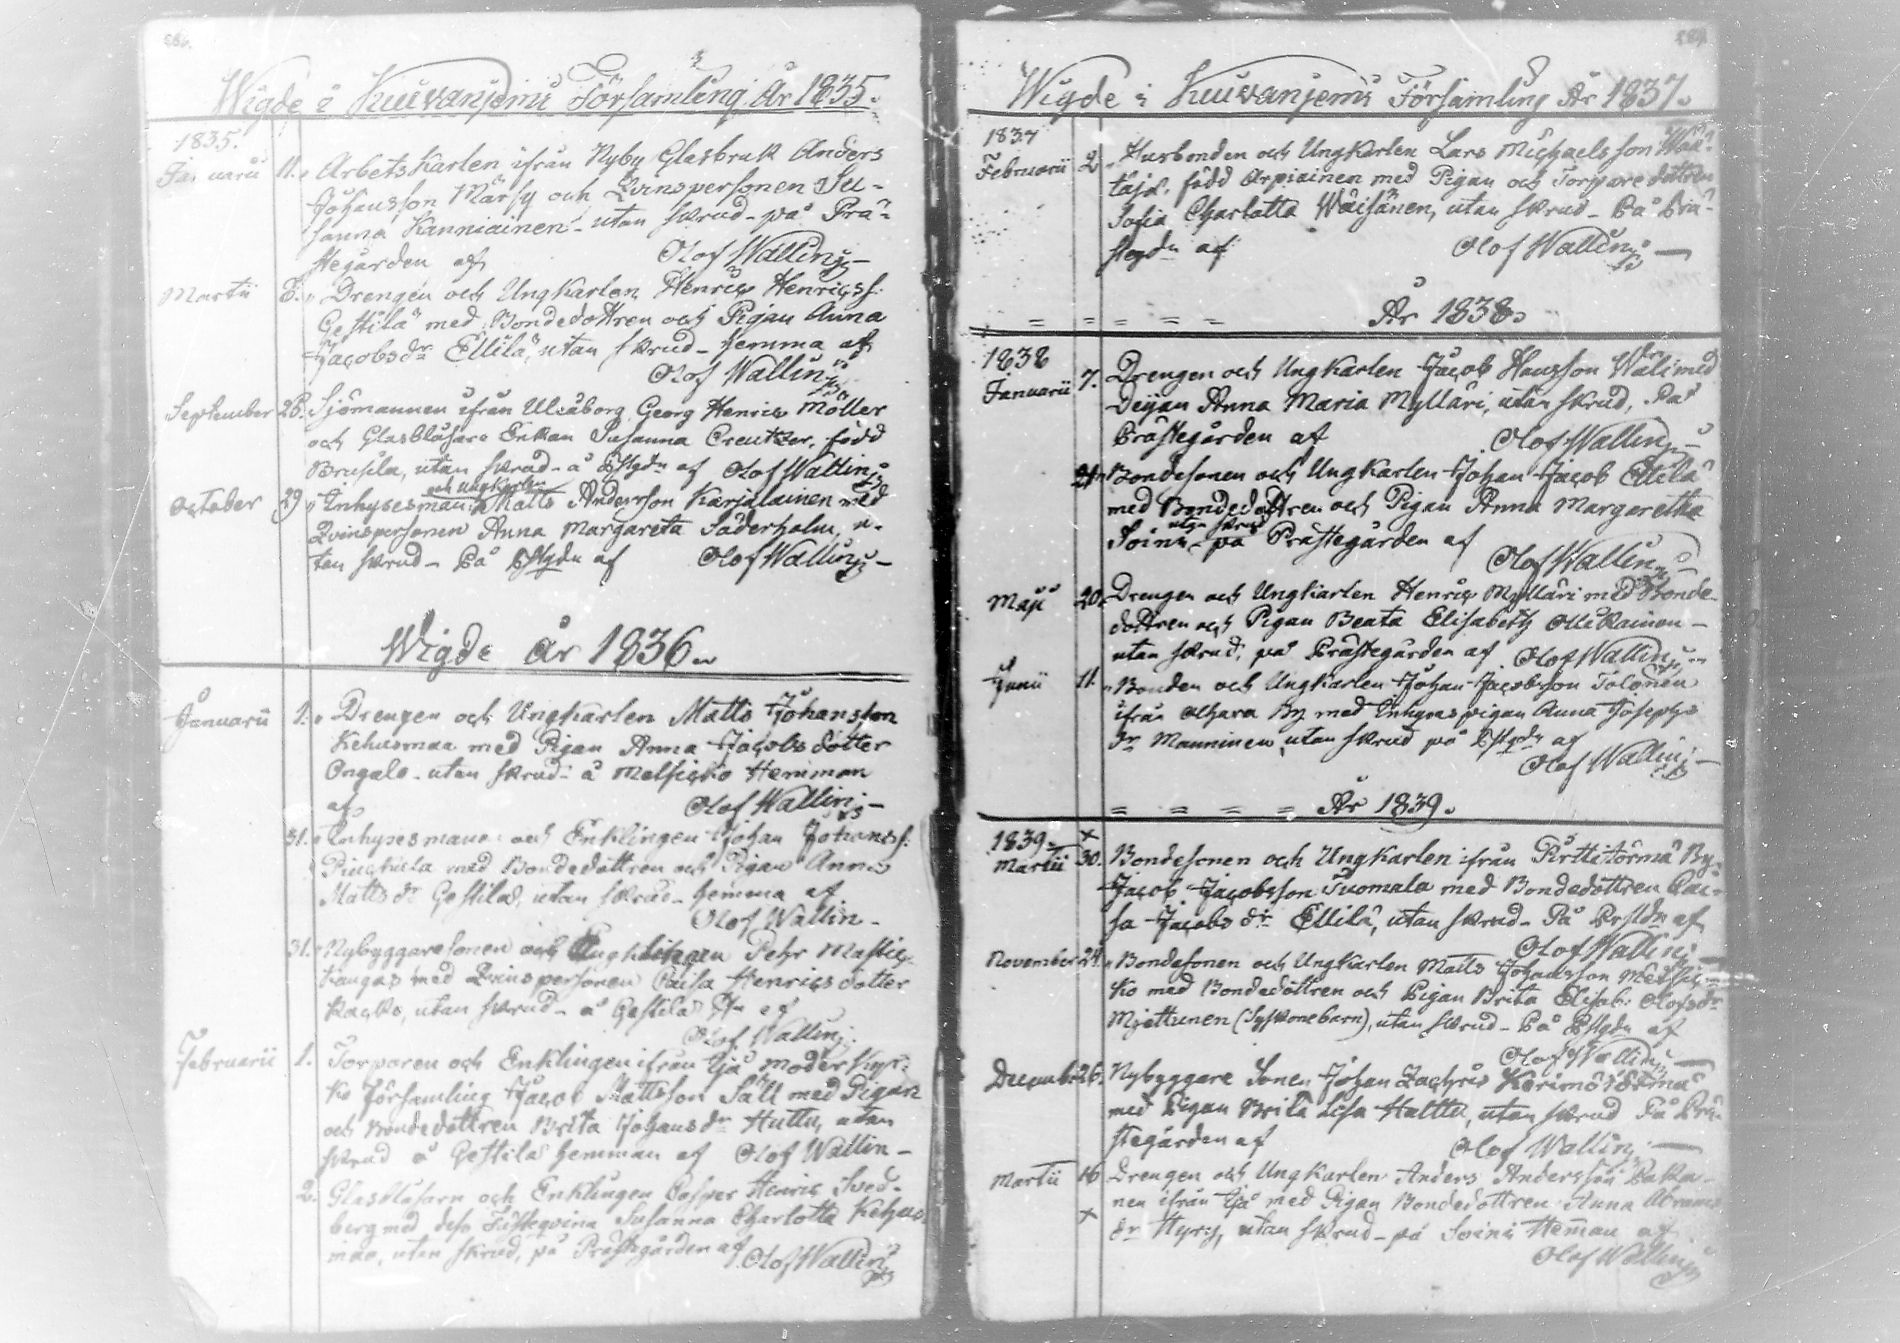 Wigde i Kuivaniemi Församling År 1835.
1835.
Januarii 11. Arbetskarlen ifrån Nyby Glasbruk Anders
Johansson Märsy och Qvinspersonen Su-
sanna Kanniainen utan skrud på Prä-
stegården af Olof Wallin
Martii 8. Drengen och Ungkarlen Henric Henricss:
Gestilä med Bondedottren och Pigan Anna
Jacobsdr Ellilä, utan skrud hemma af
Olof Wallin
September 28. Sjömannen ifrån Uleåborg Georg Henric Möller
och Glasblåsare Enkan Susanna Creutzer, född
Brusila, utan skrud å Pstgdn af Olof Wallin
och Ungkarlen
October 29. Inhysesman: Matts Andersson Karjalainen med
Qvinspersonen Anna Margareta Söderholm, u-
tan skrud På Pstgdn af Olof Wallin
Wigde år 1836
Januarii 1. Drengen och Ungkarlen Matts Johansson
Kehusmaa med Pigan Anna Jacobs dotter
Ongalo utan skrud å Metsicko Hemman
af Olof Wallin
31. Inhysesmann och Enklingen Johan Johanss:
med Bondedottren och Pigan Anna
Matts dr Gestilä, utan skrud hemma af
Olof Wallin
31. Nybyggaresonen och Pehr
Kangas med Qvinspersonen Caisa Henrics dotter
utan skrud å Gestilä af
Olof Wallin
Februarii 1. Torparen och Enklingen ifrån Ijå Moder Kyr-
ko församling Jacob Mattsson Säll med Pigan
och Bondedottren Brita Johans dr Huttu, utan
skrud å Gestilä hemman af Olof Wallin
2. Glasblåsarn och Enklingen Casper Henric Sved-
berg med dess Fästeqvinna Susanna Charlotta Kehus-
maa, utan skrud, på Prästegården af Olof Wallin
Wigde i Kuivaniemi Församling År 1837.
1837
Februarii 2. Husbonden och Ungkarlen Lars Michaelsson
född Arpiainen med Pigan och Torparedottren
Sofia Charlotta Wäisänen, utan skrud På Prä-
stegdn af Olof Wallin
År 1838
1838
Januarii 7. Drengen och Ungkarlen Jacob Hansson Wäli med
Deijan Anna Maria Mylläri, utan skrud, På
Prästegården af Olof Wallin
21. Bondesonen och Ungkarlen Johan Jacob Ellilä
med Bondedottren och Pigan Anna Margaretha
utan skrud
Soini på Prästegården af
Olof Wallin
Maji 20. Drengen och Ungkarlen Henric Mylläri med Bonde-
dottren och Pigan Beata Elisabeth Ollikainen
utan skrud, på Prästegården af Olof Wallin
Junii 11. Bonden och Ungkarlen Johan Jacobsson Tolonen
ifrån Olhava By med Inhysespigan Anna Josephs
dr Manninen utan skrud på Pstgdn af
Olof Wallin
År 1839.
1839
Martii 30. Bondesonen och Ungkarlen ifrån Pirttitörmä By
Jacob Jacobsson Tuomala med Bondedottren Cai-
sa Jacobs dr Ellilä, utan skrud På Prstgdn af
Olof Wallin
November 24. Bondesonen och Ungkarlen Matts Johansson Metsic-
ko med Bondedottren och Pigan Brita Elisab: Olofsdr
Mjettunen (Syskonebarn), utan skrud På Pstgdn af
Olof Wallin
December 26. Nybyggare Sonen Johan Zachris Kerimötörmä
med Pigan Brita Lisa Halttu, utan skrud På Prä-
stegården af Olof Wallin
Martii 16 Drengen och Ungkarlen Anders Andersson Paka-
nen ifrån Ijå med Pigan Bondedottren Anna Abrams
dr Hyry, utan skrud på Soini Hemman af
Olof Wallin